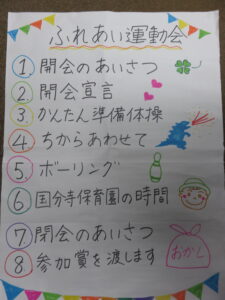 ふれあい運動会
1. 開会のあいさつ
2. 開会宣言
3. かんたん準備体操
4. ちからあわせて
5. ボーリング
6. 国分寺保育園の時間
7. 閉会のあいさつ
8. 参加賞を渡します
おかし